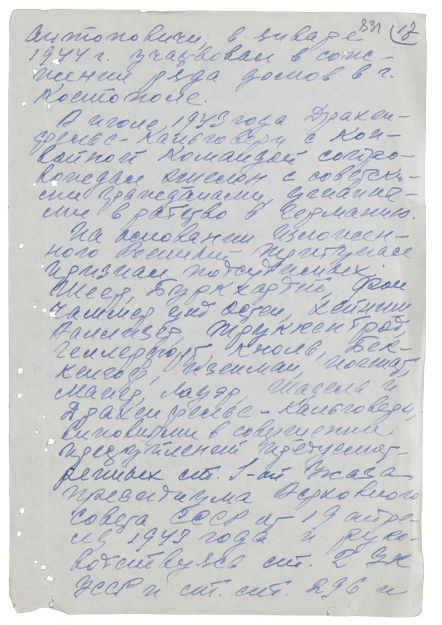 831 17
Антоновичи, в январе
1944 г. участвовал в сож-
жении ряда домов в г.
Костополе.
В июле 1943 года Дракен-
фельс-Кальювери с кон-
войной командой сопро-
вождал эшелон с советски-
ми гражданами, угнанны-
ми в рабство в Германию.
На основании изложен-
ного Военный Трибунал
признал подсудимых:
Шеер, Буркхардт, Фон
Чаммер унд Остен, Хейниш
Валлизер, Труккенброд,
Геллерфорт, Кноль, Бек-
кенгоф, Изенман,
Майер, Лауэр, Шадель и
Дракенфельс-Кальювери,
виновными в совершении
преступлений предусмот-
ренных ст. 1-ой Указа
Президиума Верховного
Совета СССР от 19 апре-
ля 1943 года и руко-
водствуясь ст. 2 УК
УССР и ст. ст. 296 и